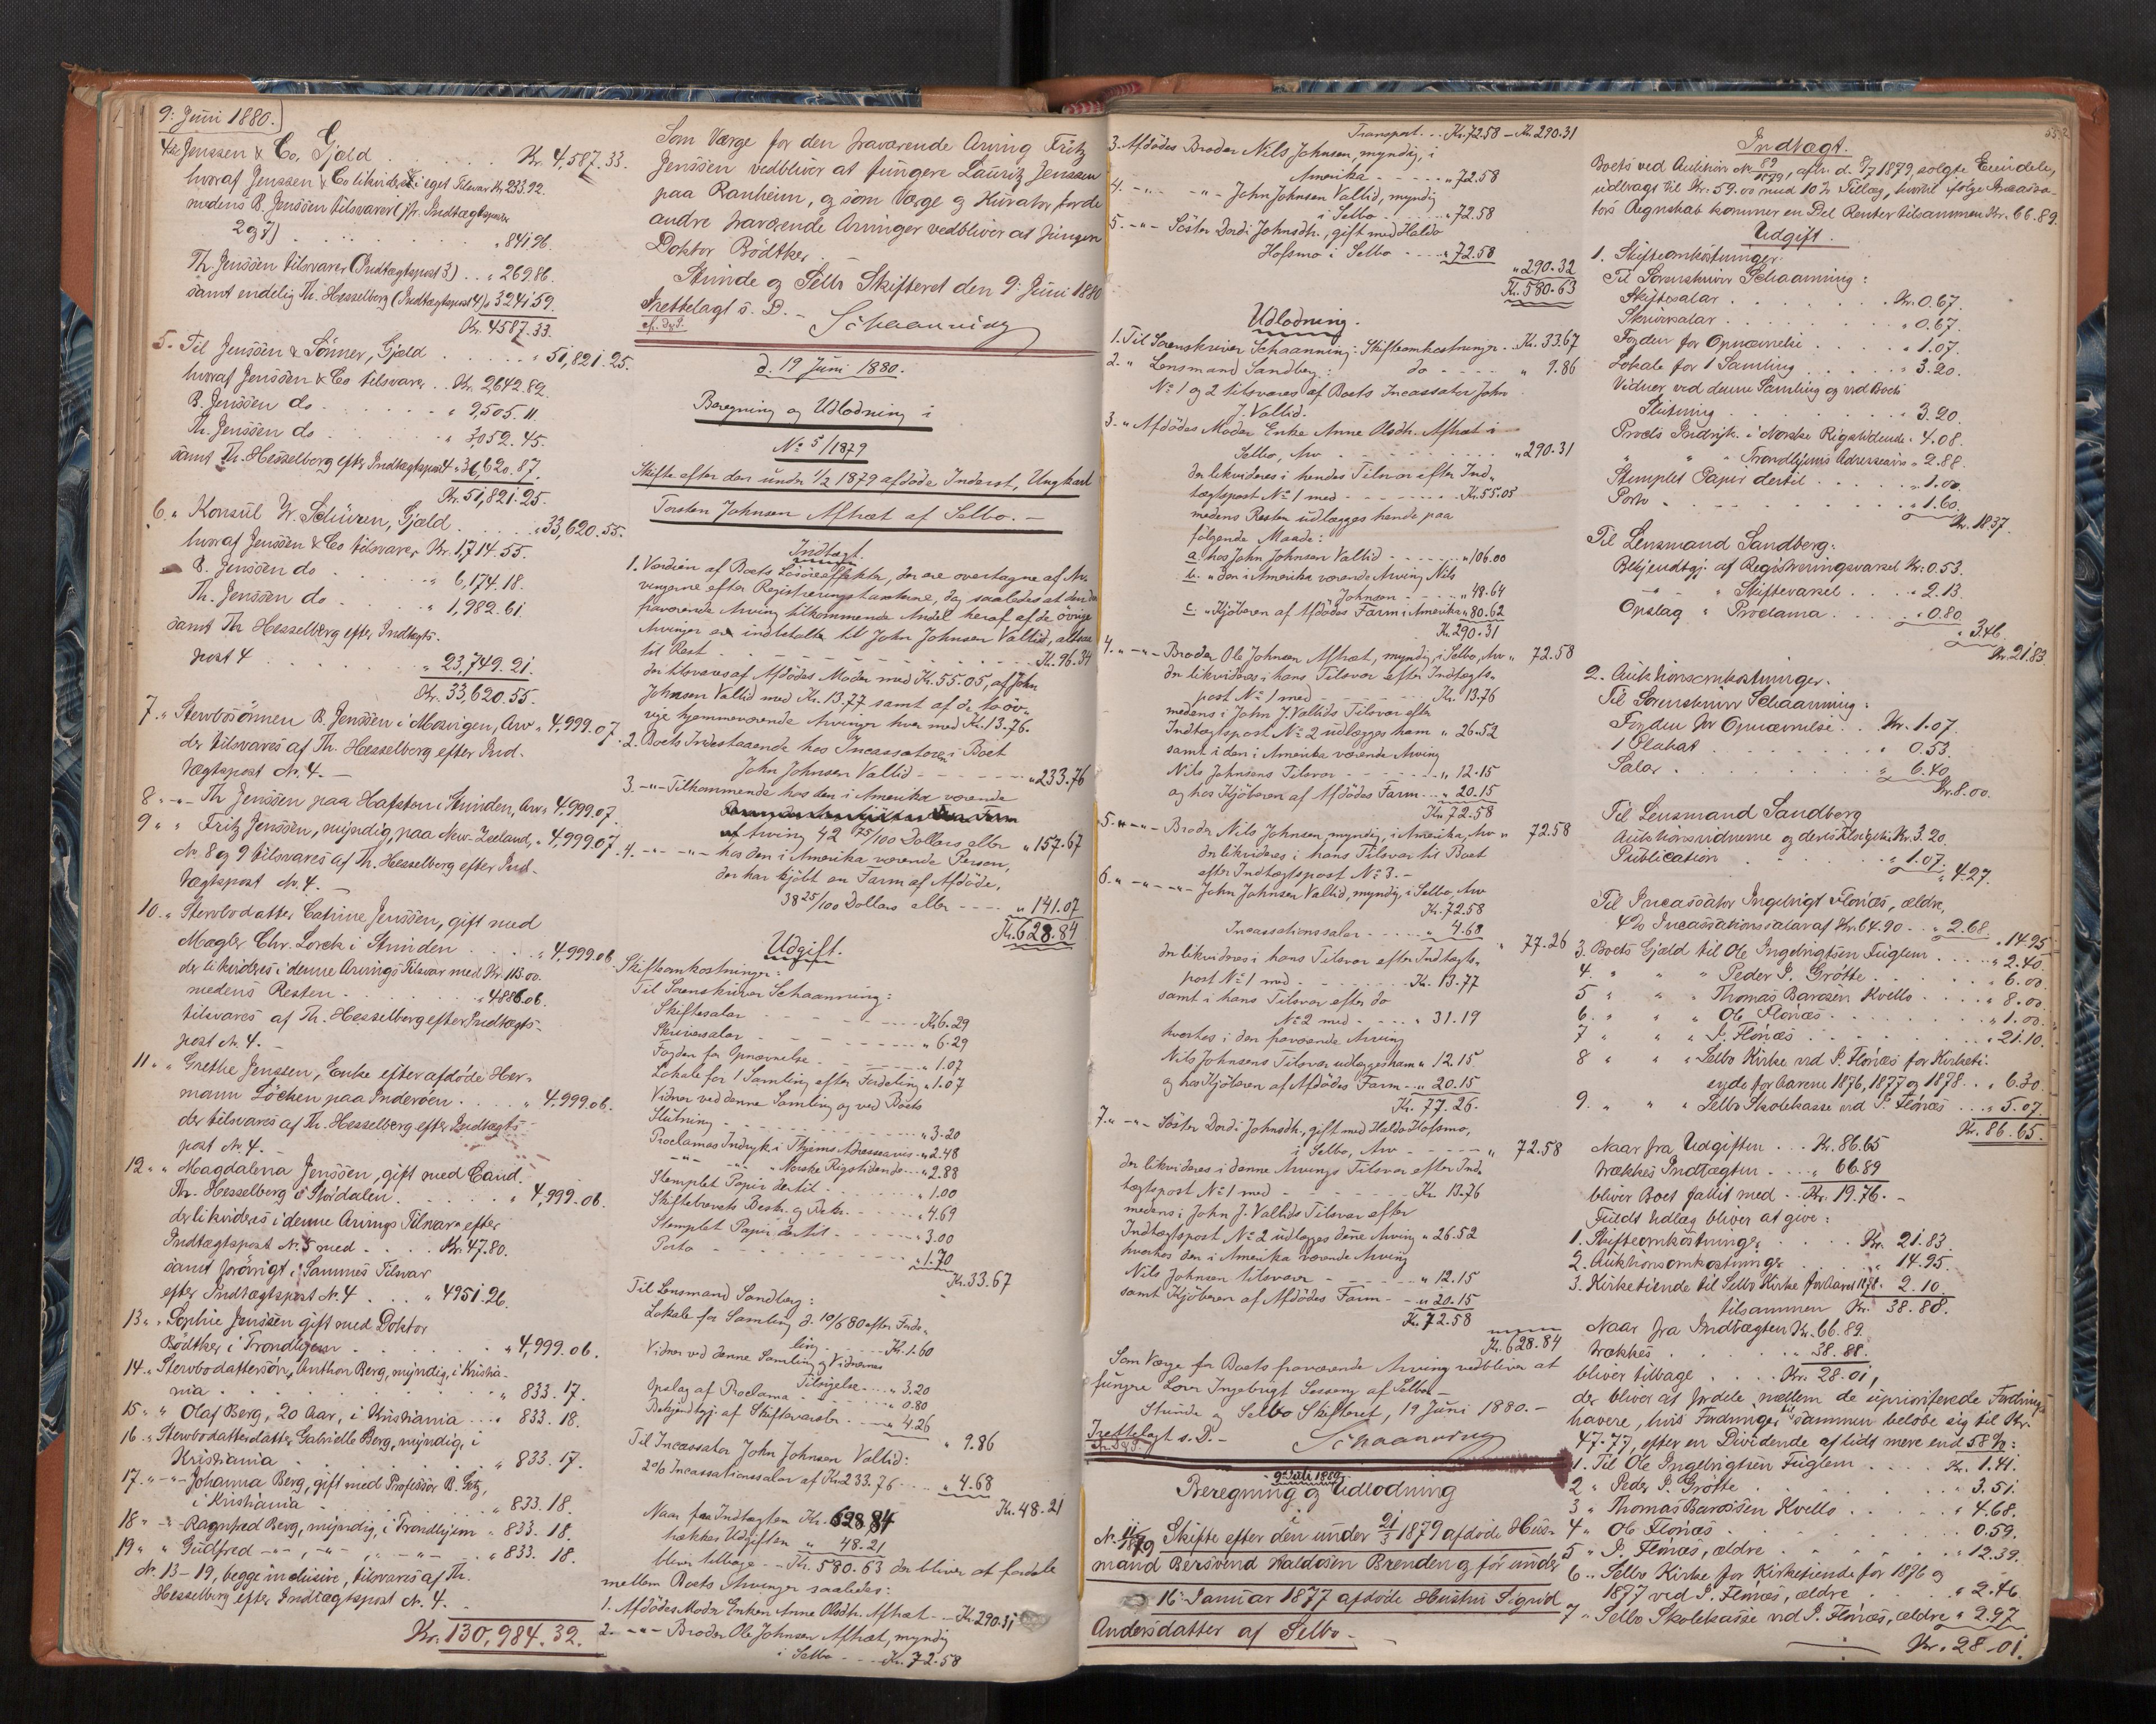 9: Juni 1880.
4. Til Jenssen & Co, Gjæld . . . . Kr. 4,587.33.
hvoraf Jenssen & Co likvideres i eget Tilsvar Kr. 233.92.
medens R. Jenssen tilsvarer (jfr. Indtægtsposter
2 og 7) . . . . „ 841.96.
Th. Jenssen tilsvarer (Indtægtspost 3) . . „ 269.86.
samt endelig Th. Hesselberg (Indtægtspost 4) „ 3241.59.
Kr. 4587.33.
5. Til Jenssen & Sönner, Gjæld . . . . „ 51,821.25.
hvoraf Jenssen & Co tilsvarer . . Kr. 2642.82.
R. Jenssen do . . . . „ 9,505.11.
Th. Jenssen do . . . . „ 3,052.45.
samt Th. Hesselberg efter Indtægtspost 4 „ 36,620.87.
Kr. 51,821.25.
6. „ Konsul W. Schüven, Gjæld . . . . „ 33,620.55.
hvoraf Jenssen & Co tilsvarer Kr. 1,714.55.
R. Jenssen do . . . . „ 6,174.18.
Th. Jenssen do . . . . „ 1,982.61.
samt Th Hesselberg efter Indtægts-
post 4 . . . . „ 23,749.21.
Kr. 33,620.55.
7. „ Stervbosönnen R. Jenssen i Mosvigen, Arv „ 4,999.07.
der tilsvares af Th. Hesselberg efter Ind-
tægtspost Nr. 4. —
8 „ -„- Th Jenssen paa Hafsten i Strinden, Arv „ 4,999.07.
9 „ „ Fritz Jenssen, myndig, paa New-Zeeland, „ 4,999.07.
Nr. 8 og 9 tilsvares af Th. Hesselberg efter Ind-
tægtspost Nr. 4. —
10. „ Stervbodatter Catrine Jenssen, gift med
Mægler Chr. Lorck i Strinden . . . . „ 4,999.06.
der likvideres i denne Arvings Tilsvar med Kr. 113.00.
medens Resten . . . . „ 4886.06.
tilsvares af Th. Hesselberg efter Indtægts-
post Nr 4. —
11. „ „ Grethe Jenssen, Enke efter afdöde Her-
mann Löchen paa Inderöen . . . . „ 4,999.06.
der tilsvares af Th. Hesselberg efter Indtægts-
post Nr. 4. —
12 „ „ Magdalena Jenssen, gift med Cand.
Th. Hesselberg i Stördalen . . . . „ 4,999.06.
der likvideres i denne Arvings Tilsvar efter
Indtægtspost Nr. 5 med . . . . Kr. 47.80.
samt forövrigt i Sammes Tilsvar
efter Indtægtspost Nr. 4 . . . „ 4951.26.
13 „ „ Sophie Jenssen gift med Doktor
Bödtker i Trondhjem . . . . „ 4,999.06.
14. „ Stervbodattersön, Anthon Berg, myndig, i Kristia-
nia . . . . „ 833.17.
15 „ „ Olaf Berg, 20 Aar, i Kristiania . . . „ 833.18.
16. „ Stervbodatterdatter Gabrielle Berg, myndig, i
Kristiania . . . . „ 833.17.
17. „ -„- Johanna Berg, gift med Professor B. Getz,
i Kristiania . . . . „ 833.18.
18 „ -„- Ragnfred Berg, myndig, i Trondhjem „ 833.18.
19 „ „ Gudfred -„-, -„- „ -„- „ 833.18.
Nr. 13-19, begge inclusive, tilsvares af Th.
Hesselberg efter Indtægtspost Nr. 4. —
Kr. 130,984.32.
Som Værge for den fraværende Arving Fritz
Jenssen vedbliver at fungere Lauritz Jenssen
paa Ranheim, og som Værge og Kurator for de
andre fraværende Arvinger vedbliver at fungere
Doktor Bödtker.
Strinde og Selbo Skifteret den 9: Juni 1880
Irettelagt s. D. —
Schaanning
d. 19 Juni 1880.
Beregning og Udlodning i
No 5/1879
Skifte efter den under 1/2 1879 afdöde Inderst, Ungkarl
Torsten Johnsen Aftræt af Selbo. —
Indtægt.
1. Værdien af Boets Lösöreeffekter, der ere overtagne af Ar-
vingerne efter Registreringstaxterne, dog saaledes at den den
fraværende Arving tilkommende Andel heraf af de övrige
Arvinger er indbetalt til John Johnsen Vallid, altsaa
til Rest . . . . Kr. 96.34
der tilsvares af Afdödes Moder med Kr. 55.05, af John
Johnsen Vallid med Kr. 13.77 samt af de to öv-
rige hjemmeværende Arvinger hver med Kr. 13.76.
2. Boets Indestaaende hos Incassatoren i Boet
John Johnsen Vallid - - - - „ 233.76
3. -„- Tilkommende hos den i Amerika værende
Arving 42 75/100 Dollars eller „ 157.67
4. -„- -„- hos den i Amerika værende Person,
der har kjöbt en Farm af Afdöde,
38 25/100 Dollars eller - - - - „ 141.07
Kr. 628.84
Udgift.
Skifteomkostninger:
Til Sorenskriver Schaanning:
Skiftesalar - - - - Kr 6.29
Skriversalar - - - - „ 6.29
Fogden for Opnævnelse - - - - „ 1.07
Lokale for 1 Samling efter Fordeling „ 1.07
Vidner ved denne Samling og ved Boets
Slutning - - - - „ 3.20
Proclamas Indryk. i Thjems Adresseavis - „ 2.48
-„- -„- „ Norske Rigstidende - - „ 2.88
Stemplet Papir dertil - - - - „ 1.00
Skiftebrevets Beskr. og Bekr. - - - - „ 4.69
Stemplet Papir dertil - - - - „ 3.00
Porto - - - - „ 1.70
Kr. 33.67
Til Lensmand Sandberg:
Lokale for Samling d. 10/6 80 efter Forde-
ling - - - - Kr. 1.60
Vidner ved denne Samling og Vidnernes
Tilsigelse - - - „ 3.20
Opslag af Proclama - - - - „ 0.80
Bekjendtgj. af Skiftevarsler - - - - „ 4.26
„ 9.86
Til Incassator John Johnsen Vallid:
2% Incassationssalar af Kr. 233.76 - - - „ 4.68
Kr. 48.21
Naar fra Indtægten Kr. 628.84
trækkes Udgiften „ 48.21
bliver tilbage - - Kr. 580.63 der bliver at fordele
mellem Boets Arvinger saaledes:
1. Afdödes Moder Enken Anne Olsdtr. Aftræt - - Kr. 290.31
2. -„- Broder Ole Johnsen Aftræt, myndig
i Selbo - - - Kr. 72.58
Transport . . Kr. 72.58 – Kr. 290.31
3. Afdödes Broder Nils Johnsen, myndig, i
Amerika - - - - „ 72.58
4. -„- -„- John Johnsen Vallid, myndig
i Selbo - - - - „ 72.58
5. -„- Söster Dordi Johnsdtr., gift med Haldo
Hofsmo i Selbo - - - „ 72.58
„ 290.32
Kr. 580.63
Udlodning.
1. Til Sorenskriver Schaanning: Skifteomkostninger - Kr. 33.67
2. „ Lensmand Sandberg: do - - - - „ 9.86
No 1 og 2 tilsvares af Boets Incassator John
J. Vallid.
3. „ Afdödes Moder Enke Anne Olsdtr. Aftræt i
Selbo, Arv - - - - „ 290.31
der likvideres i hendes Tilsvar efter Ind-
tægtspost No 1 med - - - - Kr. 55.05
medens Resten udlægges hende paa
følgende Maade:
a. hos John Johnsen Vallid - - - - „ 106.00
b. „ den i Amerika værende Arving Nils
Johnsen - - - - „ 48.64
c. „ Kjöberen af Afdödes Farm i Amerika „ 80.62
Kr. 290.31
4. „ -„- Broder Ole Johnsen Aftræt, myndig, i Selbo, Arv „ 72.58
der likvideres i hans Tilsvar efter Indtægts-
post No 1 med - - - - Kr. 13.76
medens i John J. Vallids Tilsvar efter
Indtægtspost No 2 udlægges ham „ 26.52
samt i den i Amerika værende Arving
Nils Johnsens Tilsvar - - - - „ 12.15
og hos Kjöberen af Afdödes Farm - - „ 20.15
Kr. 72.58
5. „ -„- Broder Nils Johnsen, myndig, i Amerika, Arv „ 72.58
der likvideres i hans Tilsvar til Boet
efter Indtægtspost No 3. —
6. „ -„- -„- John Johnsen Vallid, myndig, i Selbo, Arv
Kr. 72.58
Incassationssalar - - - - „ 4.68
„ 77.26
der likvideres i hans Tilsvar efter Indtægts-
post No 1 med - - - - Kr. 13.77
samt i hans Tilsvar efter do
No 2 med - - - - „ 31.19
hvorhos i den fraværende Arving
Nils Johnsens Tilsvar udlægges ham „ 12.15
og hos Kjöberen af Afdödes Farm - - „ 20.15
Kr. 77.26.
7. „ -„- Söster Dordi Johnsdtr., gift med Haldo Hofsmo,
i Selbo, Arv - - - - „ 72.58
der likvideres i denne Arvings Tilsvar efter Ind-
tægtspost No 1 med - - - - Kr. 13.76
medens i John J. Vallids Tilsvar efter
Indtægtspost No 2 udlægges denne Arving „ 26.52
hvorhos den i Amerika værende Arving
Nils Johnsen tilsvarer - - - - „ 12.15
samt Kjöberen af Afdödes Farm - - „ 20.15
Kr. 72.58
Kr. 628.84
Som Værge for Boets fraværende Arving vedbliver at
fungere Lars Ingebrigt Sesseng af Selbo —
Strinde og Selbo Skifteret, 19 Juni 1880. —
Irettelagt s. D. —
Schaanning
9: Juli 1880.
Beregning og Udlodning
i
Nr. 11/1879 Skifte efter den under 21/3 1879 afdöde Hus-
mand Bersvend Haldosen Brenden og för under
16: Januar 1877 afdöde Hustru Sigrid
Andersdatter af Selbo. —
552
Indtægt.
Boets ved Auktion Nr. 89/1879, afh. d. 9/7 1879, solgte Eiendele,
udbragt til Kr. 59.00 med 10% Tillæg, hvortil ifølge Incassa-
tors Regnskab kommer en Del Renter tilsammen Kr. 66.89.
Udgift.
1. Skifteomkostninger:
Til Sorenskriver Schaanning:
Skiftesalar . . . . Kr. 0.67.
Skriversalar . . . . „ 0.67.
Fogden for Opnævnelse . . . . „ 1.07.
Lokale for 1 Samling . . . . „ 3.20.
Vidner ved denne Samling og ved Boets
Slutning . . . . „ 3.20
Procls Indryk. i Norske Rigstidende „ 4.08.
„ „ „ Trondhjems Adresseavis „ 2.88.
Stemplet Papir dertil . . . . „ 1.00.
Porto . . . . „ 1.60.
Kr. 18.37.
Til Lensmand Sandberg:
Bekjendtgj. af Registreringsvarsel Kr. 0.53.
-„- „ Skiftevarsel . . . . „ 2.13.
Opslag „ Proclama . . . . „ 0.80.
„ 3.46.
Kr. 21.83.
2. Auktionsomkostninger.
Til Sorenskriver Schaanning:
Fogden for Opnævnelse . . Kr. 1.07.
1 Plakat . . . . „ 0.53.
Salar . . . . „ 6.40.
Kr. 8.00.
Til Lensmand Sandberg
Auktionsvidnerne og deres Tilsigelse Kr. 3.20.
Publication . . . . „ 1.07.
„ 4.27.
Til Incassator Ingebrigt Flönæs, ældre,
4% Incassationssalar af Kr. 64.90 - - „ 2.68.
„ 14.95.
3. Boets Gjæld til Ole Ingebrigtsen Fuglem . . . . „ 2.40.
4. „ „ „ Peder P. Grötte . . . . „ 6.00.
5 „ „ „ Thomas Baroesen Kvello . . . . „ 8.00.
6. „ „ „ Ole Flönæs . . . . „ 1.00.
7 „ „ „ I. Flönæs . . . . „ 21.10.
8 „ „ „ Selbo Kirke ved I. Flönæs for Kirketi-
ende for Aarene 1876, 1877 og 1878 . . „ 6.30.
9. „ „ „ Selbo Skolekasse ved I. Flönæs . . . „ 5.07.
Kr. 86.65.
Naar fra Udgiften . . . Kr. 86.65
trækkes Indtægten . . . „ 66.89
bliver Boet fallit med . . Kr. 19.76. —
Fuldt Udlæg bliver at give:
1. Skifteomkostninger . . . . Kr. 21.83.
2. Auktionsomkostninger . . . . „ 14.95.
3. Kirketiende til Selbo Kirke for Aaret 1878 „ 2.10.
tilsammen Kr. 38.88.
Naar fra Indtægten Kr. 66.89.
trækkes . . . . „ 38.88.
bliver tilbage . . . . Kr. 28.01,
der bliver at fordele mellem de uprioriterede Fordrings-
havere, hvis Fordringer tilsammen belöbe sig til Kr.
47.77, efter en Dividende af lidt mere end 58%:
1. Til Ole Ingebrigtsen Fuglem . . . . Kr. 1.41.
2 „ Peder P. Grötte . . . . „ 3.51.
3 „ Thomas Baroesen Kvello . . . . „ 4.68.
4 „ Ole Flönæs . . . . „ 0.59.
5 „ I. Flönæs, ældre . . . . „ 12.39.
6 „ Selbo Kirke for Kirketiende for 1876 og
1877 ved I. Flönæs, ældre . . . . „ 2.46.
7 „ Selbo Skolekasse ved I. Flönæs, ældre „ 2.97
Kr. 28.01.